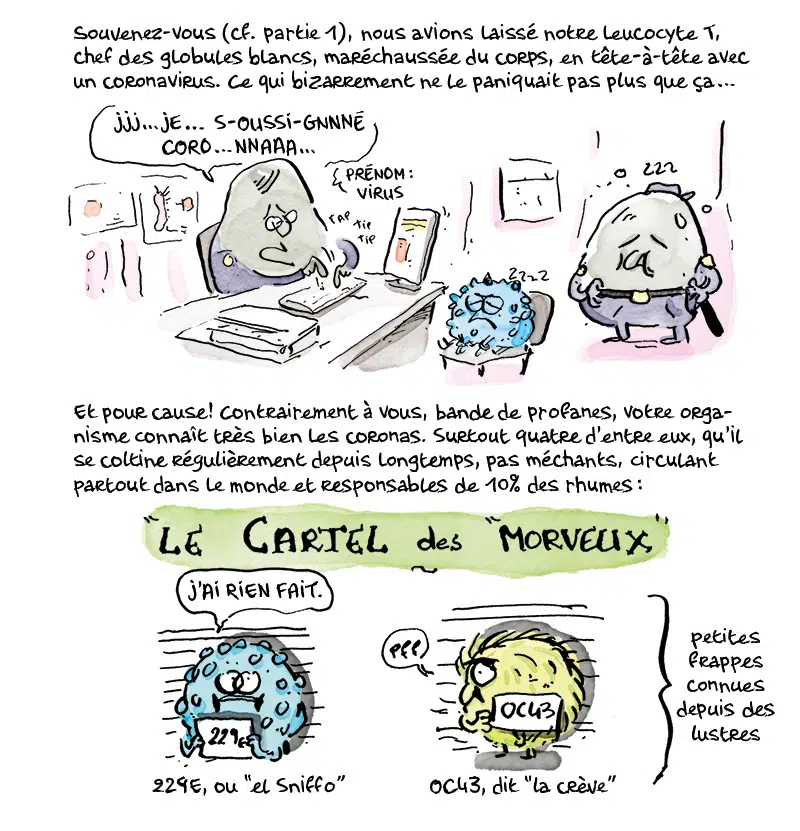 Souvenez-vous (cf. partie 1), nous avions laissé notre Leucocyte T,
chef des globules blancs, maréchaussée du corps, en tête-à-tête avec
un coronavirus. Ce qui bizarrement ne le paniquait pas plus que ça...
jjj...JE... S-OUSSI-GNNNÉ
CORO...NNAAA...
PRÉNOM:
VIRUS
TAP
TIP
TIP
zzzz
zzz
Et pour cause! Contrairement à vous, bande de profanes, votre orga-
nisme connaît très bien les coronas. Surtout quatre d'entre eux, qu'il
se coltine régulièrement depuis longtemps, pas méchants, circulant
partout dans le monde et responsables de 10% des rhumes:
"LE CARTEL des "MORVEUX"
J'AI RIEN FAIT.
PFF
229E
OC43
petites
frappes
connues
depuis des
lustres
229E, ou "el Sniffo"
OC43, dit "la crève"